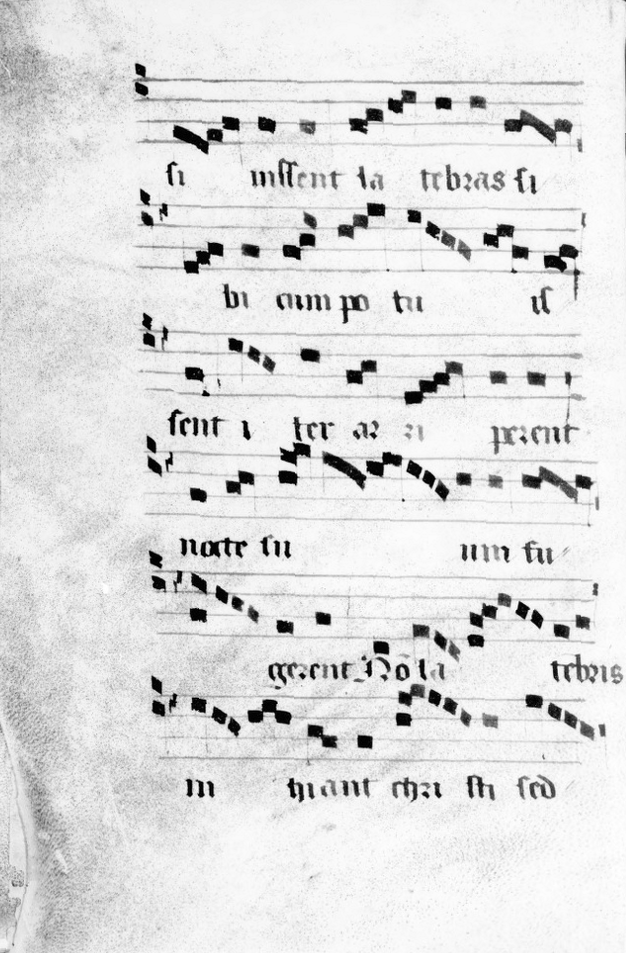 si inssent la tebras si
bi cum po tu is
sent i ter ar ri perent
nocte su um fu
gerent Nō la tebris
in hiant chri sti sed